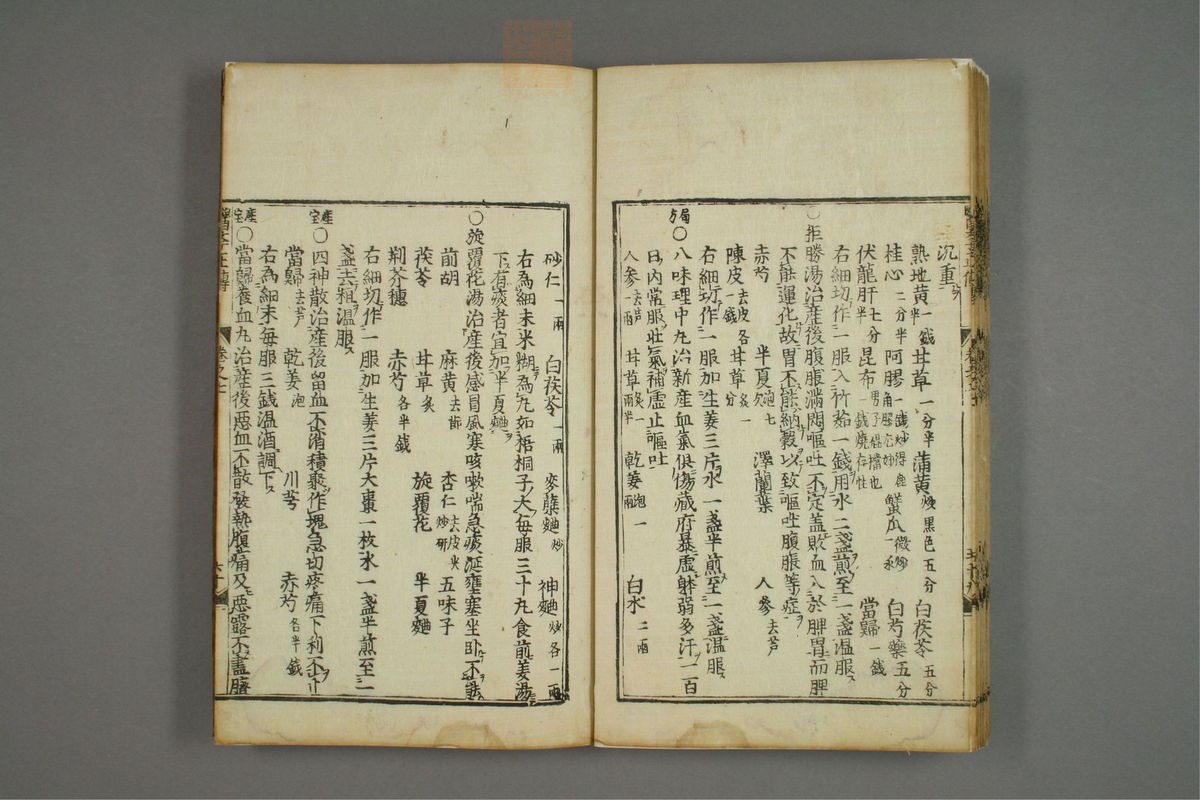 沉重
熟地黄一錢半 甘草一分半 蒲黄炒黒色五分 白茯苓五分
桂心二分半 阿膠一錢炒得 蟹爪一 微炒 白芍藥五分
伏龍肝七分半 昆布 男子 也一錢燒存性 當歸一錢
右細切作一服入竹茹一錢用水二盞煎至一盞温服
○拒勝湯治産後腹脹滿悶嘔吐不定盖敗血入於脾胃而脾
不能運化故胃不能納穀以致嘔吐腹脹等症
赤芍 半夏 七 澤蘭葉 人參去芦
陳皮去皮各一錢 甘草炙一分
右細切作一服加生姜三片水一盞半煎至一盞温服
局方○八味理中丸治新産血氣俱傷藏府暴虚躰弱多汗一百
日内常服壯氣補虚止嘔吐
人參去芦一兩 甘草炙一兩半 乾姜炮一兩 白朮二兩
砂仁一兩 白茯苓一兩 麥蘖麯炒 神麯炒各一兩
右為細末米糊為丸如梧桐子大每服三十丸食前姜湯
下有痰者宜加半夏麯
○旋覆花湯治産後感冒風塞咳嗽喘急痰涎壅塞坐卧不能
前胡 麻黄去節 杏仁去皮尖炒研 五味子
茯苓 甘草炙 旋覆花 半夏麯
荆芥穗 赤芍各半錢
右細切作一服加生姜三片大棗一枚水一盞半煎至一
盞去粗温服
産宝○四神散治産後留血不消積聚作塊急切疼痛下利不止
當歸去芦 乾姜炮 川芎 赤芍各半錢
右為細末每服三錢温酒調下
産宝○當歸養血丸治産後惡血不散發熱腹痛及惡露不盡臍